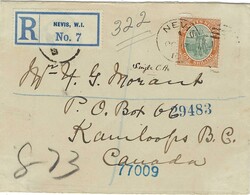 NEVIS, W.I.
R
No. 7
322
NEVIS
Single CA
Mr H. G. Morant
P.O. Box 66
29483
Kamloops B.C.
Canada
8-73
77009